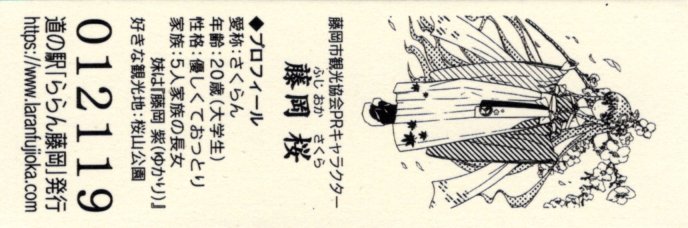 藤岡市観光協会PRキャラクター
ふじおか さくら
藤岡 桜
◆プロフィール
愛称:さくらん
年齢:20歳(大学生)
性格:優しくておっとり
家族:5人家族の長女
妹は『藤岡 紫(ゆかり)』
好きな観光地:桜山公園
012119
道の駅「ららん藤岡」発行
https://www.laranfujioka.com